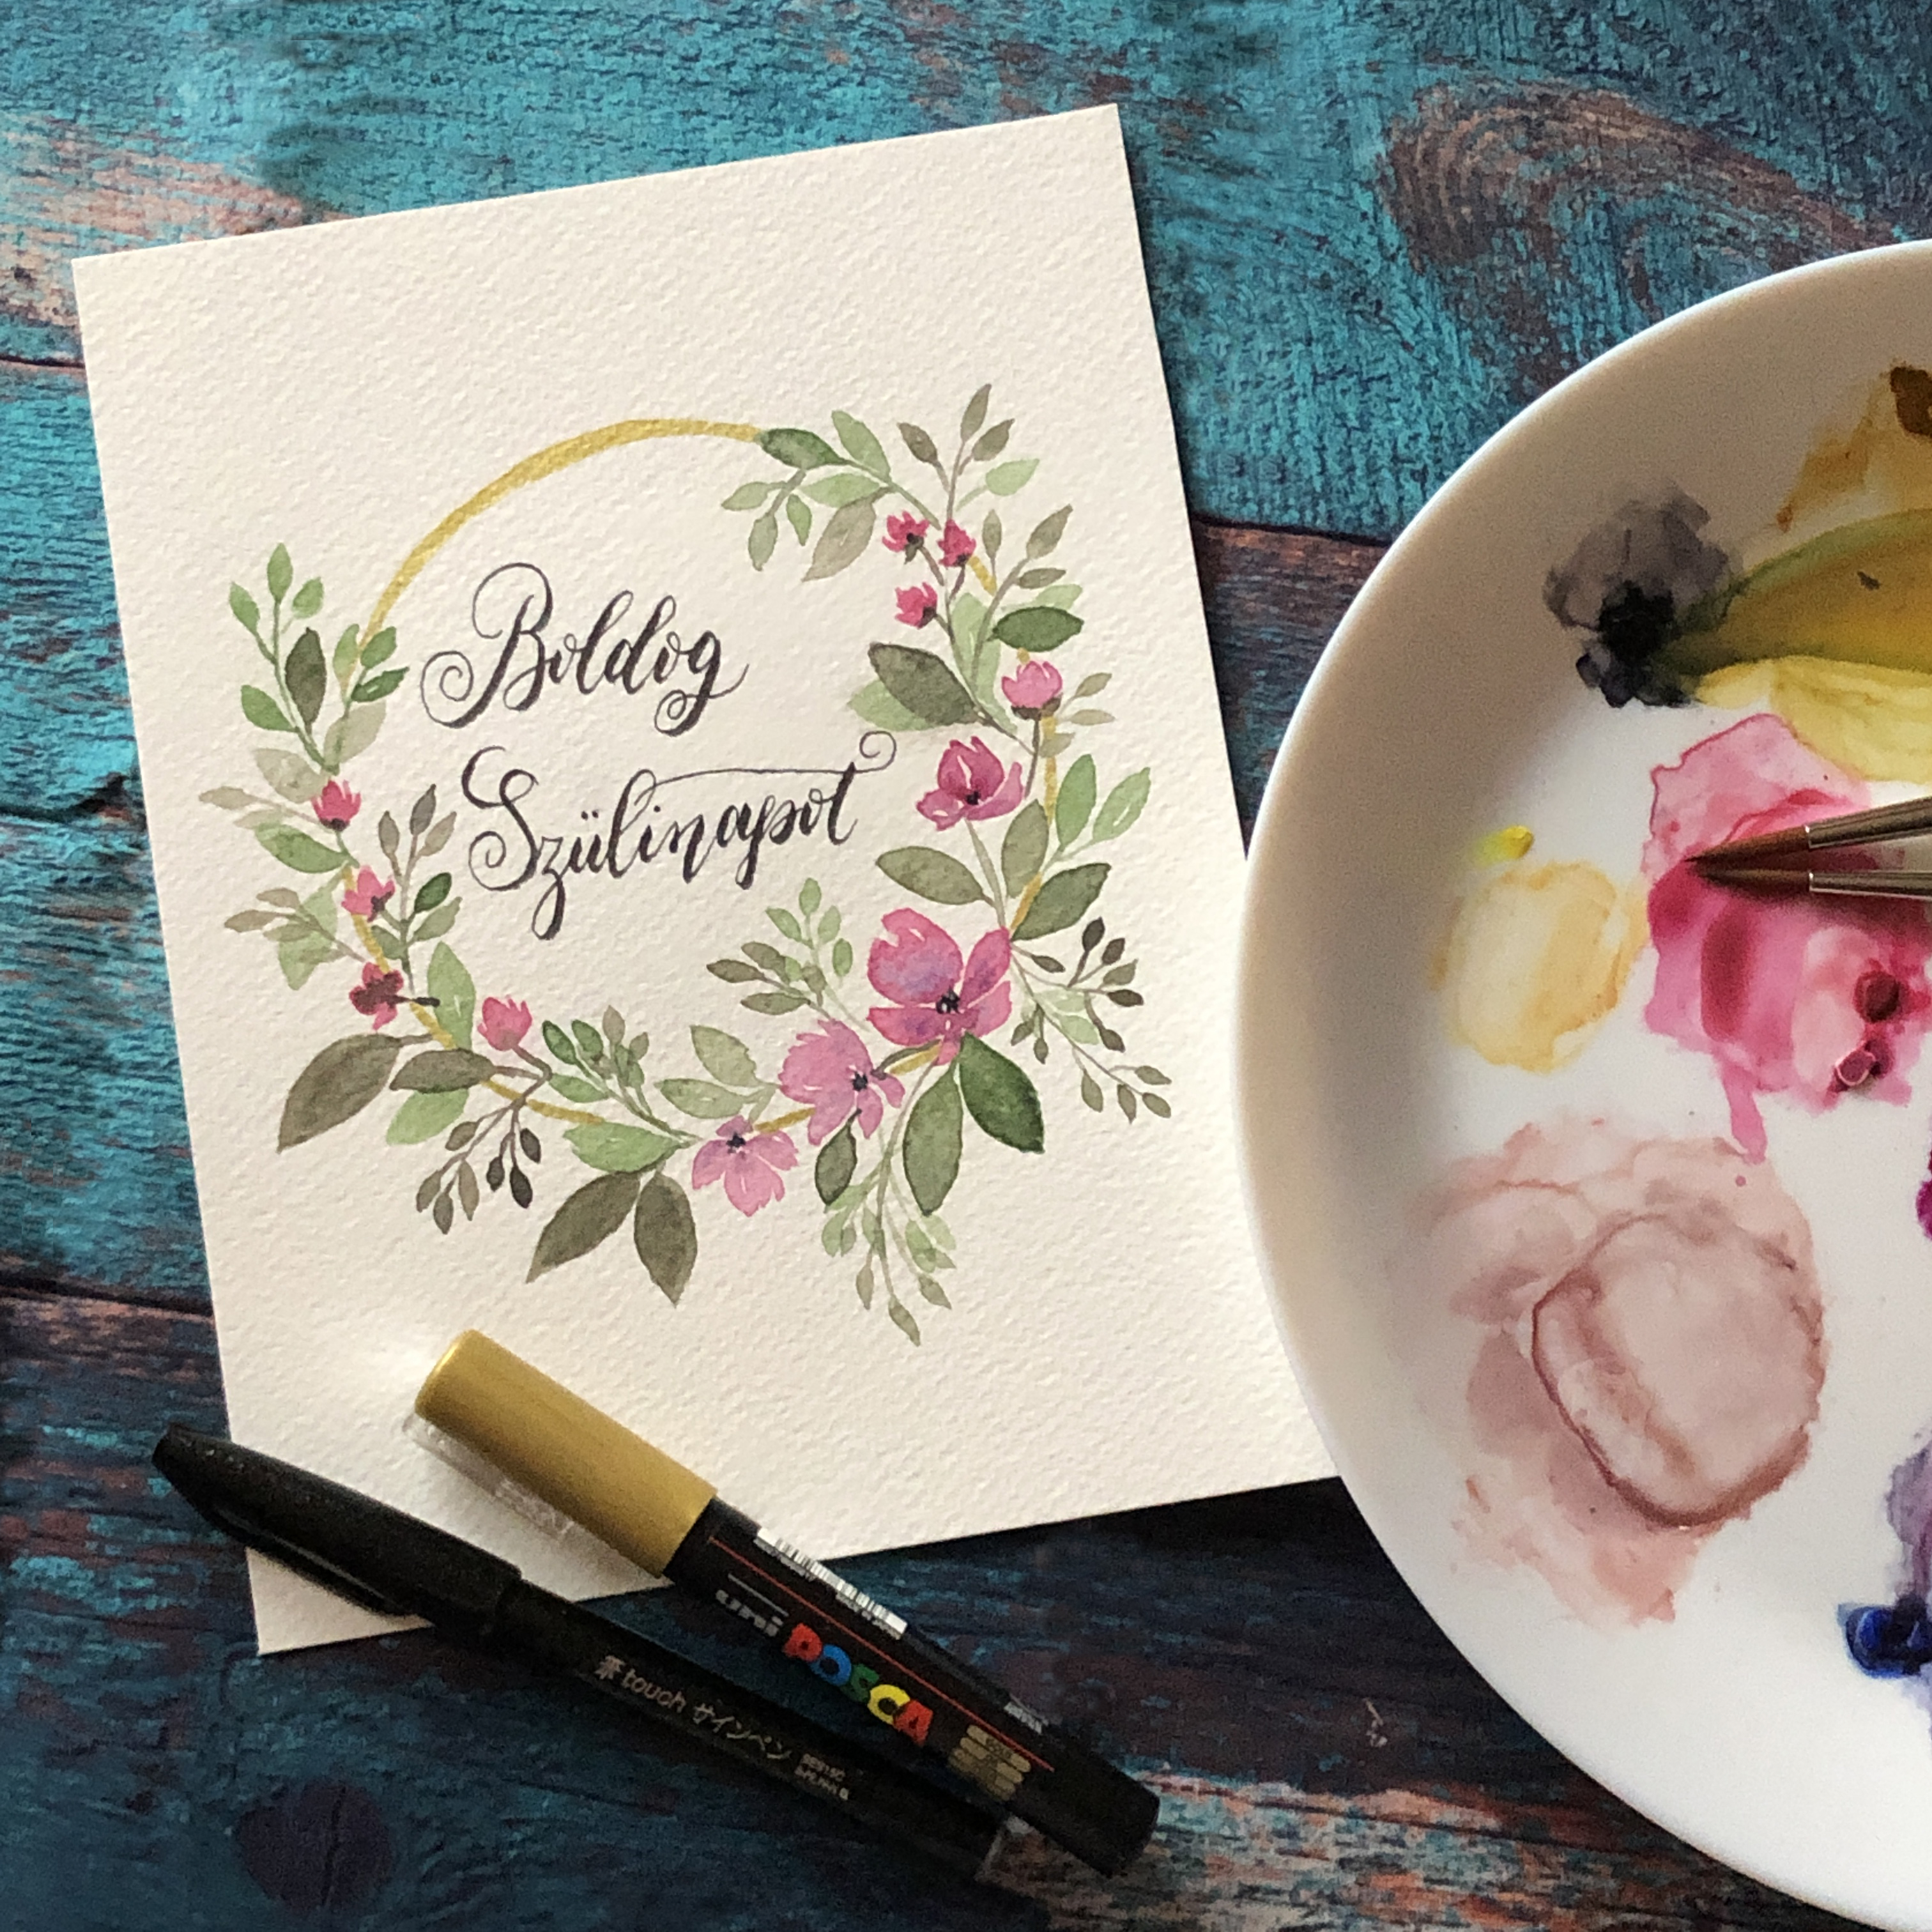 Boldog
Szülinapot
uni
POSCA
筆touch サインペン